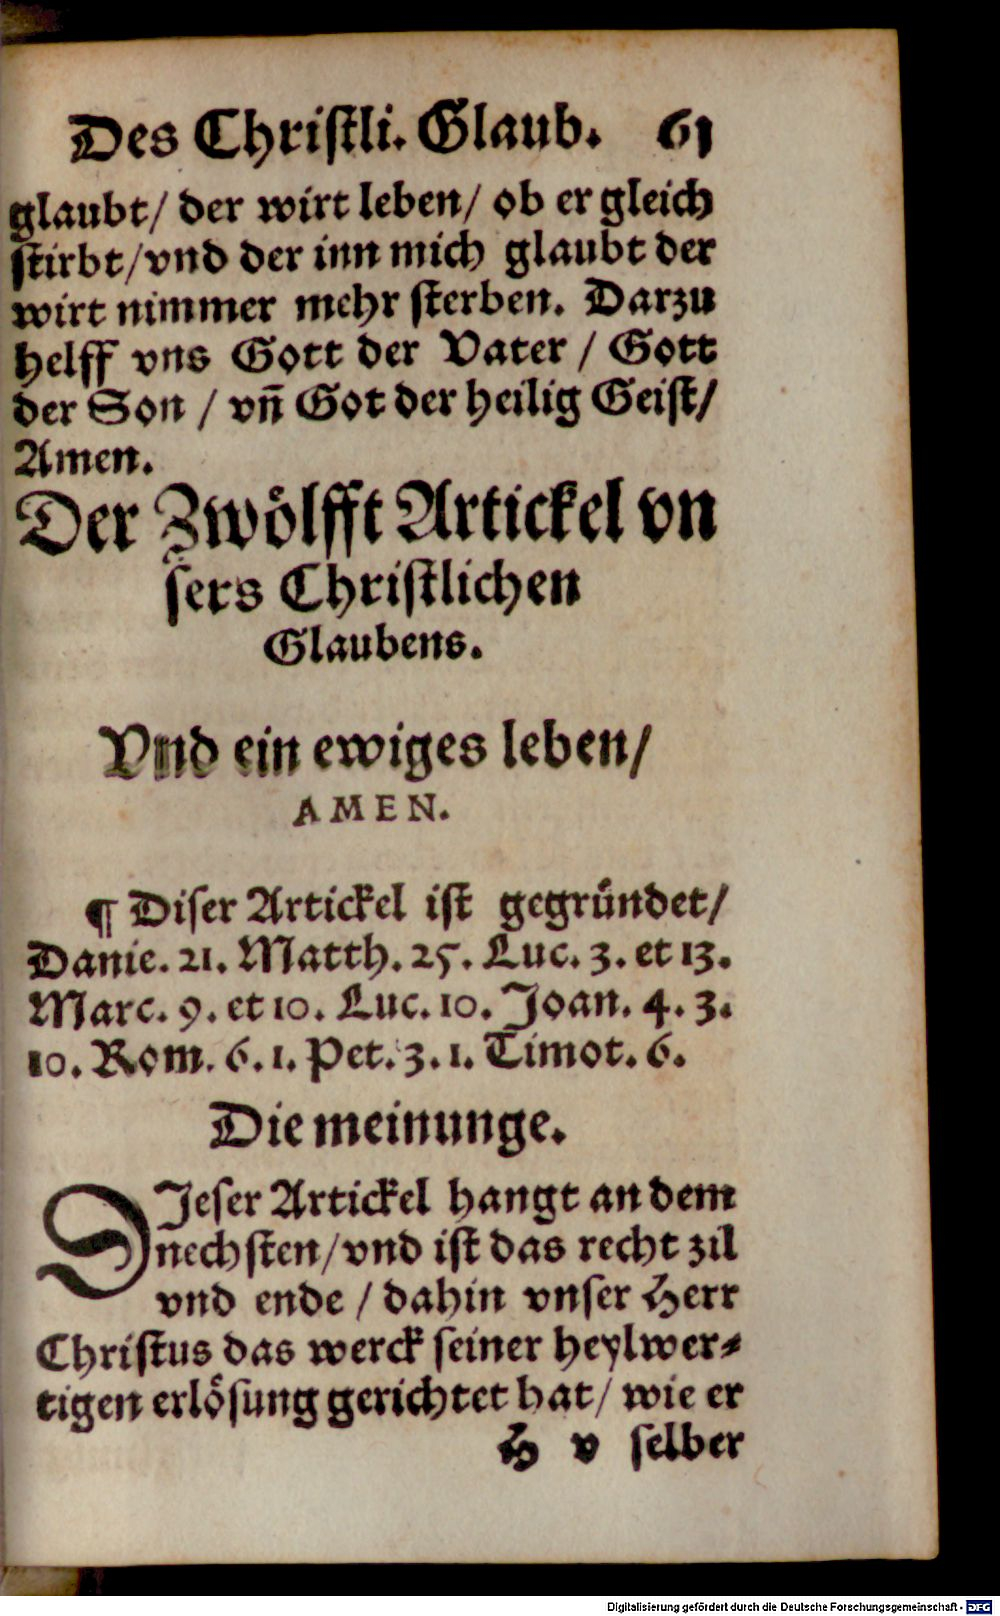 Des Christli. Glaub. 61
glaubt/ der wirt leben/ ob er gleich
stirbt/vnd der inn mich glaubt der
wirt nimmer mehr sterben. Darzu
helff vns Gott der Vater / Gott
der Son / vn̄ Got der heilig Geist/
Amen.
Der Zwölfft Artickel vn
sers Christlichen
Glaubens.
Vnd ein ewiges leben/
AMEN.
¶ Diser Artickel ist gegründet/
Danie. 21. Matth. 25. Luc. 3. et 13.
Marc. 9. et 10. Luc. 10. Joan. 4. 3.
10. Rom. 6. 1. Pet. 3. 1. Timot. 6.
Die meinunge.
DJeser Artickel hangt an dem
nechsten/vnd ist das recht zil
vnd ende / dahin vnser Herr
Christus das werck seiner heylwer⸗
tigen erlösung gerichtet hat/ wie er
H v selber
Digitalisierung gefördert durch die Deutsche Forschungsgemeinschaft - DFG